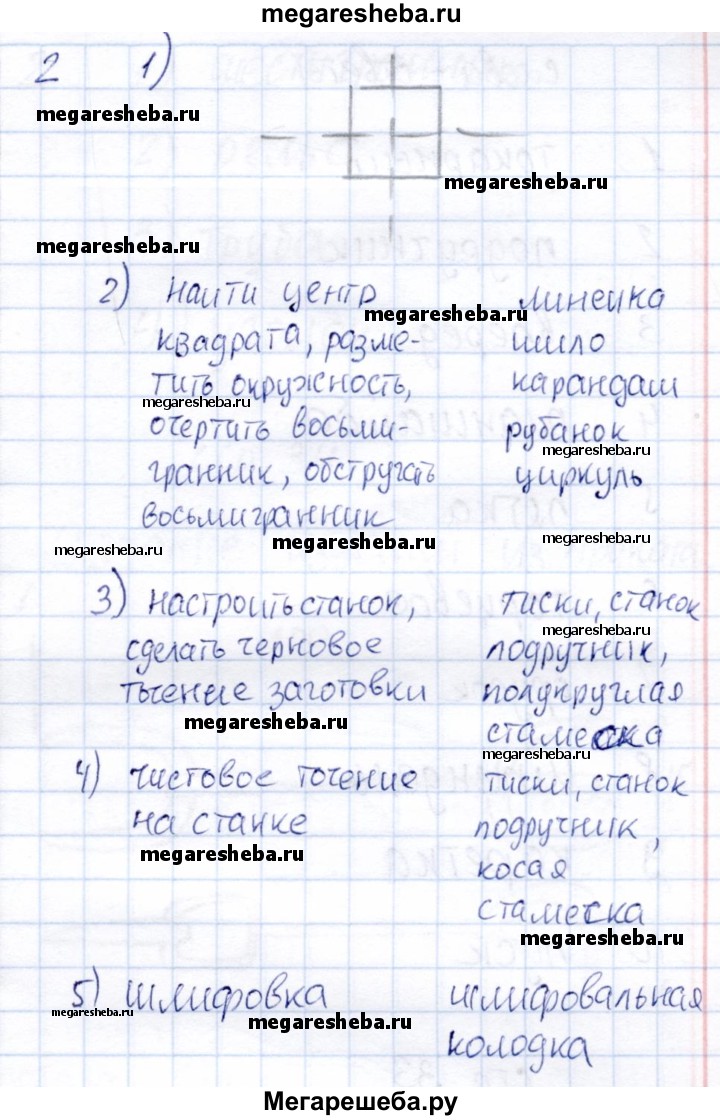 megaresheba.ru
2 1)
megaresheba.ru
megaresheba.ru
megaresheba.ru
2) найти центр линейка
megaresheba.ru
квадрата, разме- шило
тить окружность, карандаш
megaresheba.ru
очертить восьми- рубанок
megaresheba.ru
гранник, обстругать циркуль
восьмигранник
megaresheba.ru megaresheba.ru megaresheba.ru
3) настроить станок, тиски, станок
megaresheba.ru
сделать черновое подручник,
точение заготовки полукруглая
megaresheba.ru
стамеска
megaresheba.ru
4) чистовое точение тиски, станок
на станке подручник,
megaresheba.ru
косая
стамеска
megaresheba.ru
5) шлифовка шлифовальная
megaresheba.ru megaresheba.ru
колодка
Мегарешеба.ру